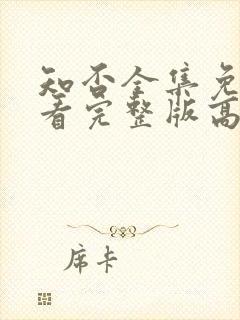 知否全集免
看完整版高
席卡